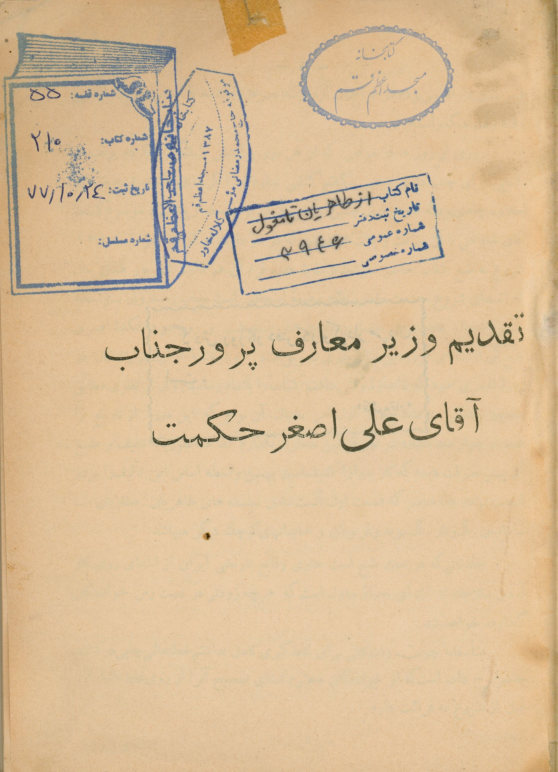 کتابخانه
مسجد اعظم قم
شماره قفسه: ۵۵
شماره کتاب: ۲۱۰
تاریخ ثبت: ۷۷/۱۰/۲٤
شماره مسلسل:
کتابخانه
مسجد اعظم قم
۱۳۸۷
نام کتاب از طاهریان تا مغول
تاریخ ثبت دفتر
شماره عمومی ۳۹۴۶
شماره خصوصی
تقدیم وزیر معارف پرور جناب
آقای علی اصغر حکمت